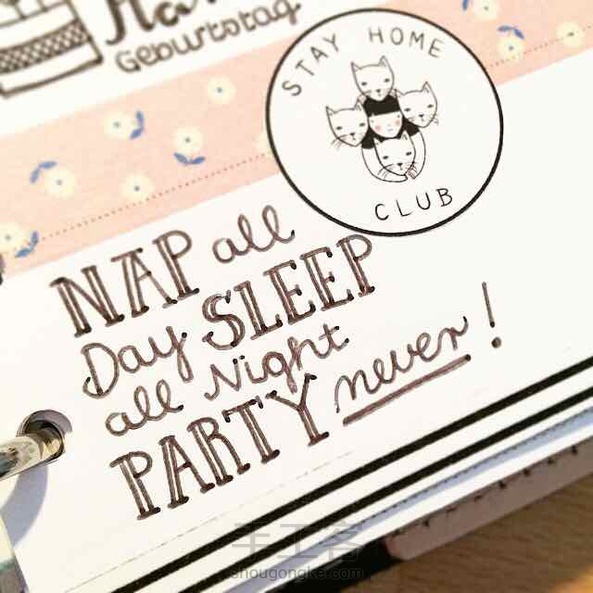 Geburtstag
STAY HOME
CLUB
NAP all
Day SLEEP
all Night
PARTY never!
手工客
shougongke.com